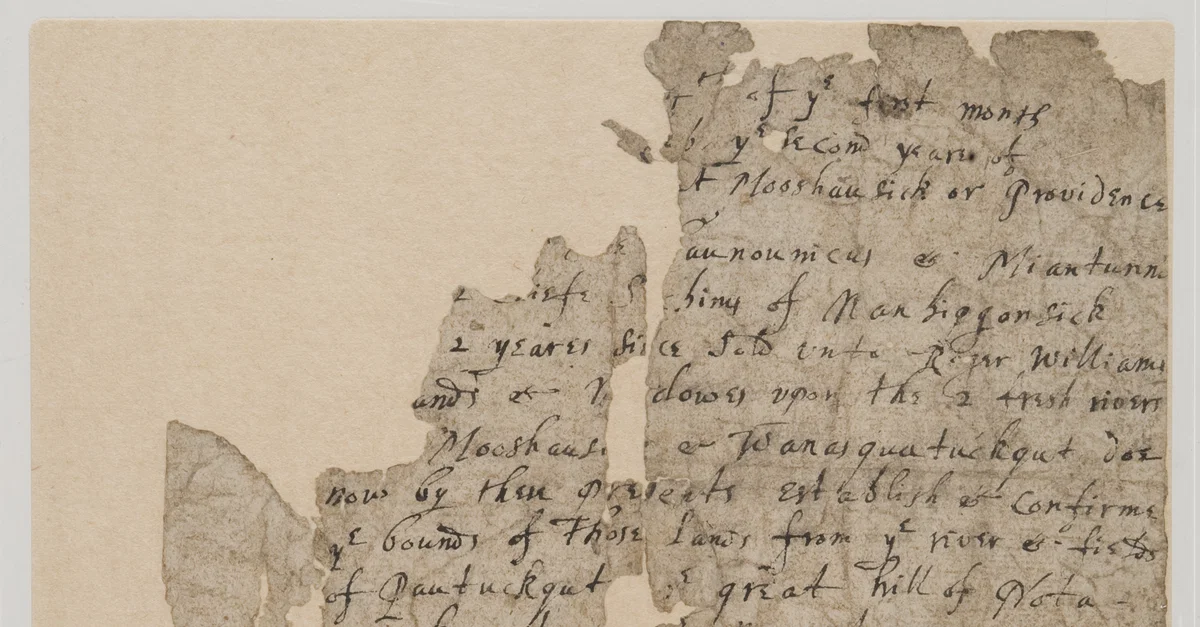 of yᵉ first month
yᵉ second yeare of
At Mooshausick or Providence
aunounicus & Miantunn
2 chiefe S chims of Nanhiggonsick
2 yeares since Sold vnto Roger Williams
ands & M dowes vpon the 2 fresh rivers
Mooshausi & Wanasquatuckqut doe
now by these presents establish & confirme
yᵉ bounds of Those Lands from yᵉ river & fields
of Pautuckqut yᵉ great hill of Nota -